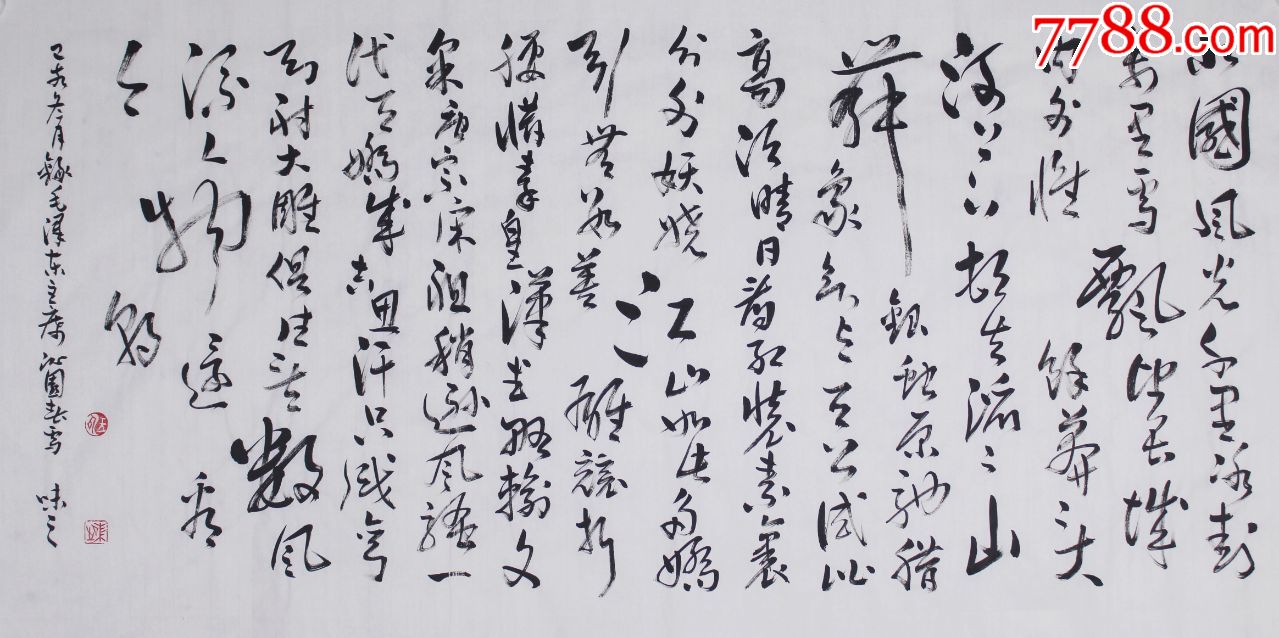 7788.com
北國風光千里冰封
萬里雪飄望長城
内外惟餘莽々大
河上下頓失滔々山
舞銀蛇原馳腊
象欲与天公試比
高須晴日看紅裝素裹
分外妖嬈江山如此多嬌
引無雄競折
腰惜秦皇漢武略輸文
采唐宗宋祖稍遜風騷一
代天嬌成吉思汗只識弯
弓射大雕俱往矣數風
流人物還看
今朝
己亥冬月錄毛澤東主席沁園春雪 味三